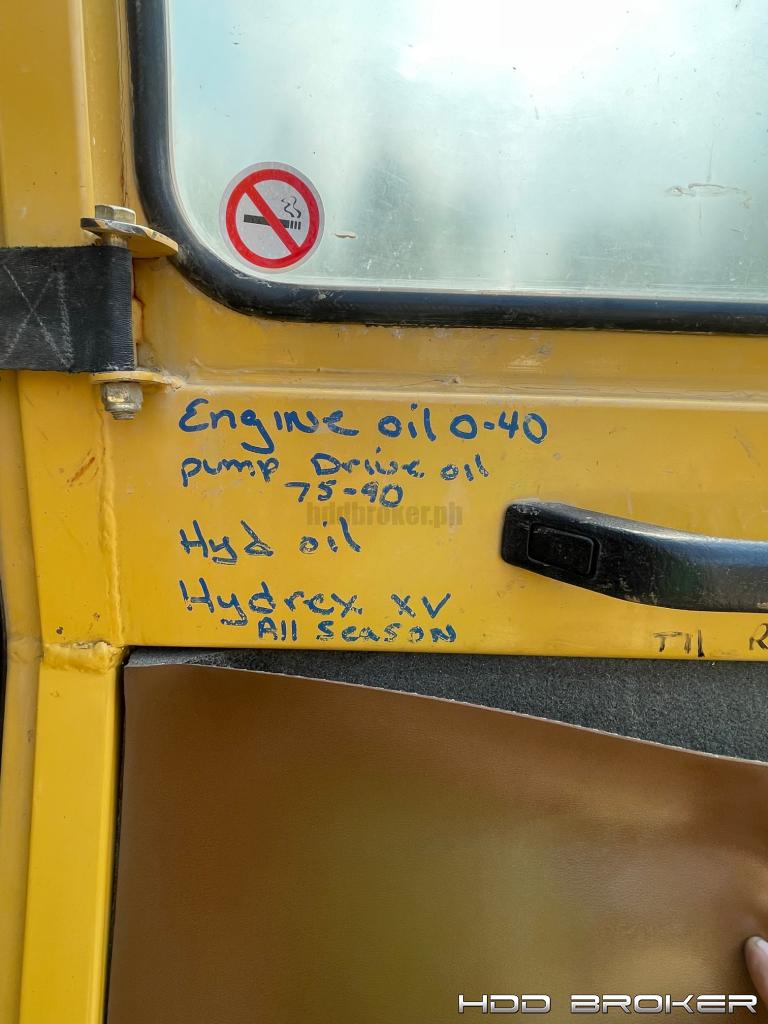 Engine oil 0-40
pump Drive oil
75-90
hddbroker.ph
Hyd oil
Hydrex XV
All Season
HDD BROKER